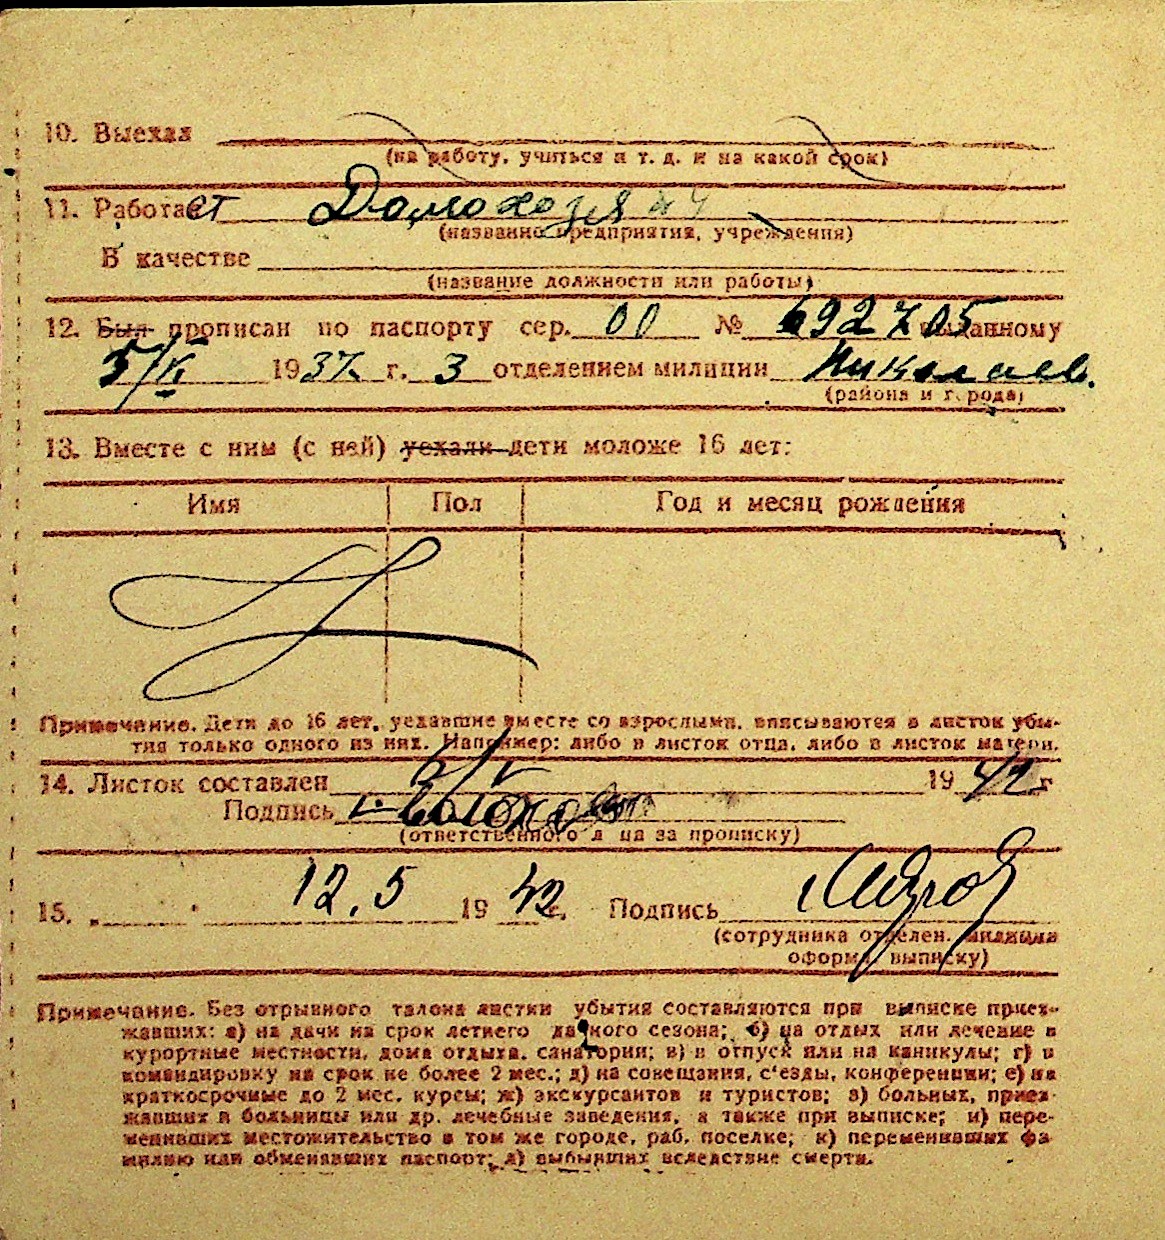 10. Выехал
(на работу, учиться и т. д. и на какой срок)
11. Работает Домохозяй
(название предприятия, учреждения)
В качестве
(название должности или работы)
12. Был прописан по паспорту сер. 00 № 692705 выданному
5/IV 1937 г. 3 отделением милиции Николаев.
(района и города)
13. Вместе с ним (с ней) уехали дети моложе 16 лет:
Имя Пол Год и месяц рождения
Примечание. Дети до 16 лет, уехавшие вместе со взрослыми, вписываются в листок убы-
тия только одного из них. Например: либо в листок отца, либо в листок матери.
14. Листок составлен 1942 г
Подпись
(ответственного лица за прописку)
15. „ 12.5 1942 г. Подпись
(сотрудника отделен. милиции
оформ. выписку)
Примечание. Без отрывного талона листки убытия составляются при выписке приез-
жавших: а) на дачи на срок летнего дачного сезона; б) на отдых или лечение в
курортные местности, дома отдыха, санатории; в) в отпуск или на каникулы; г) в
командировку на срок не более 2 мес.; д) на совещания, с'езды, конференции; е) на
краткосрочные до 2 мес. курсы; ж) экскурсантов и туристов; з) больных, приез-
жавших в больницы или др. лечебные заведения, а также при выписке; и) пере-
менивших местожительство в том же городе, раб. поселке; к) переменивших фа-
милию или обменявших паспорт; л) выбывших вследствие смерти.